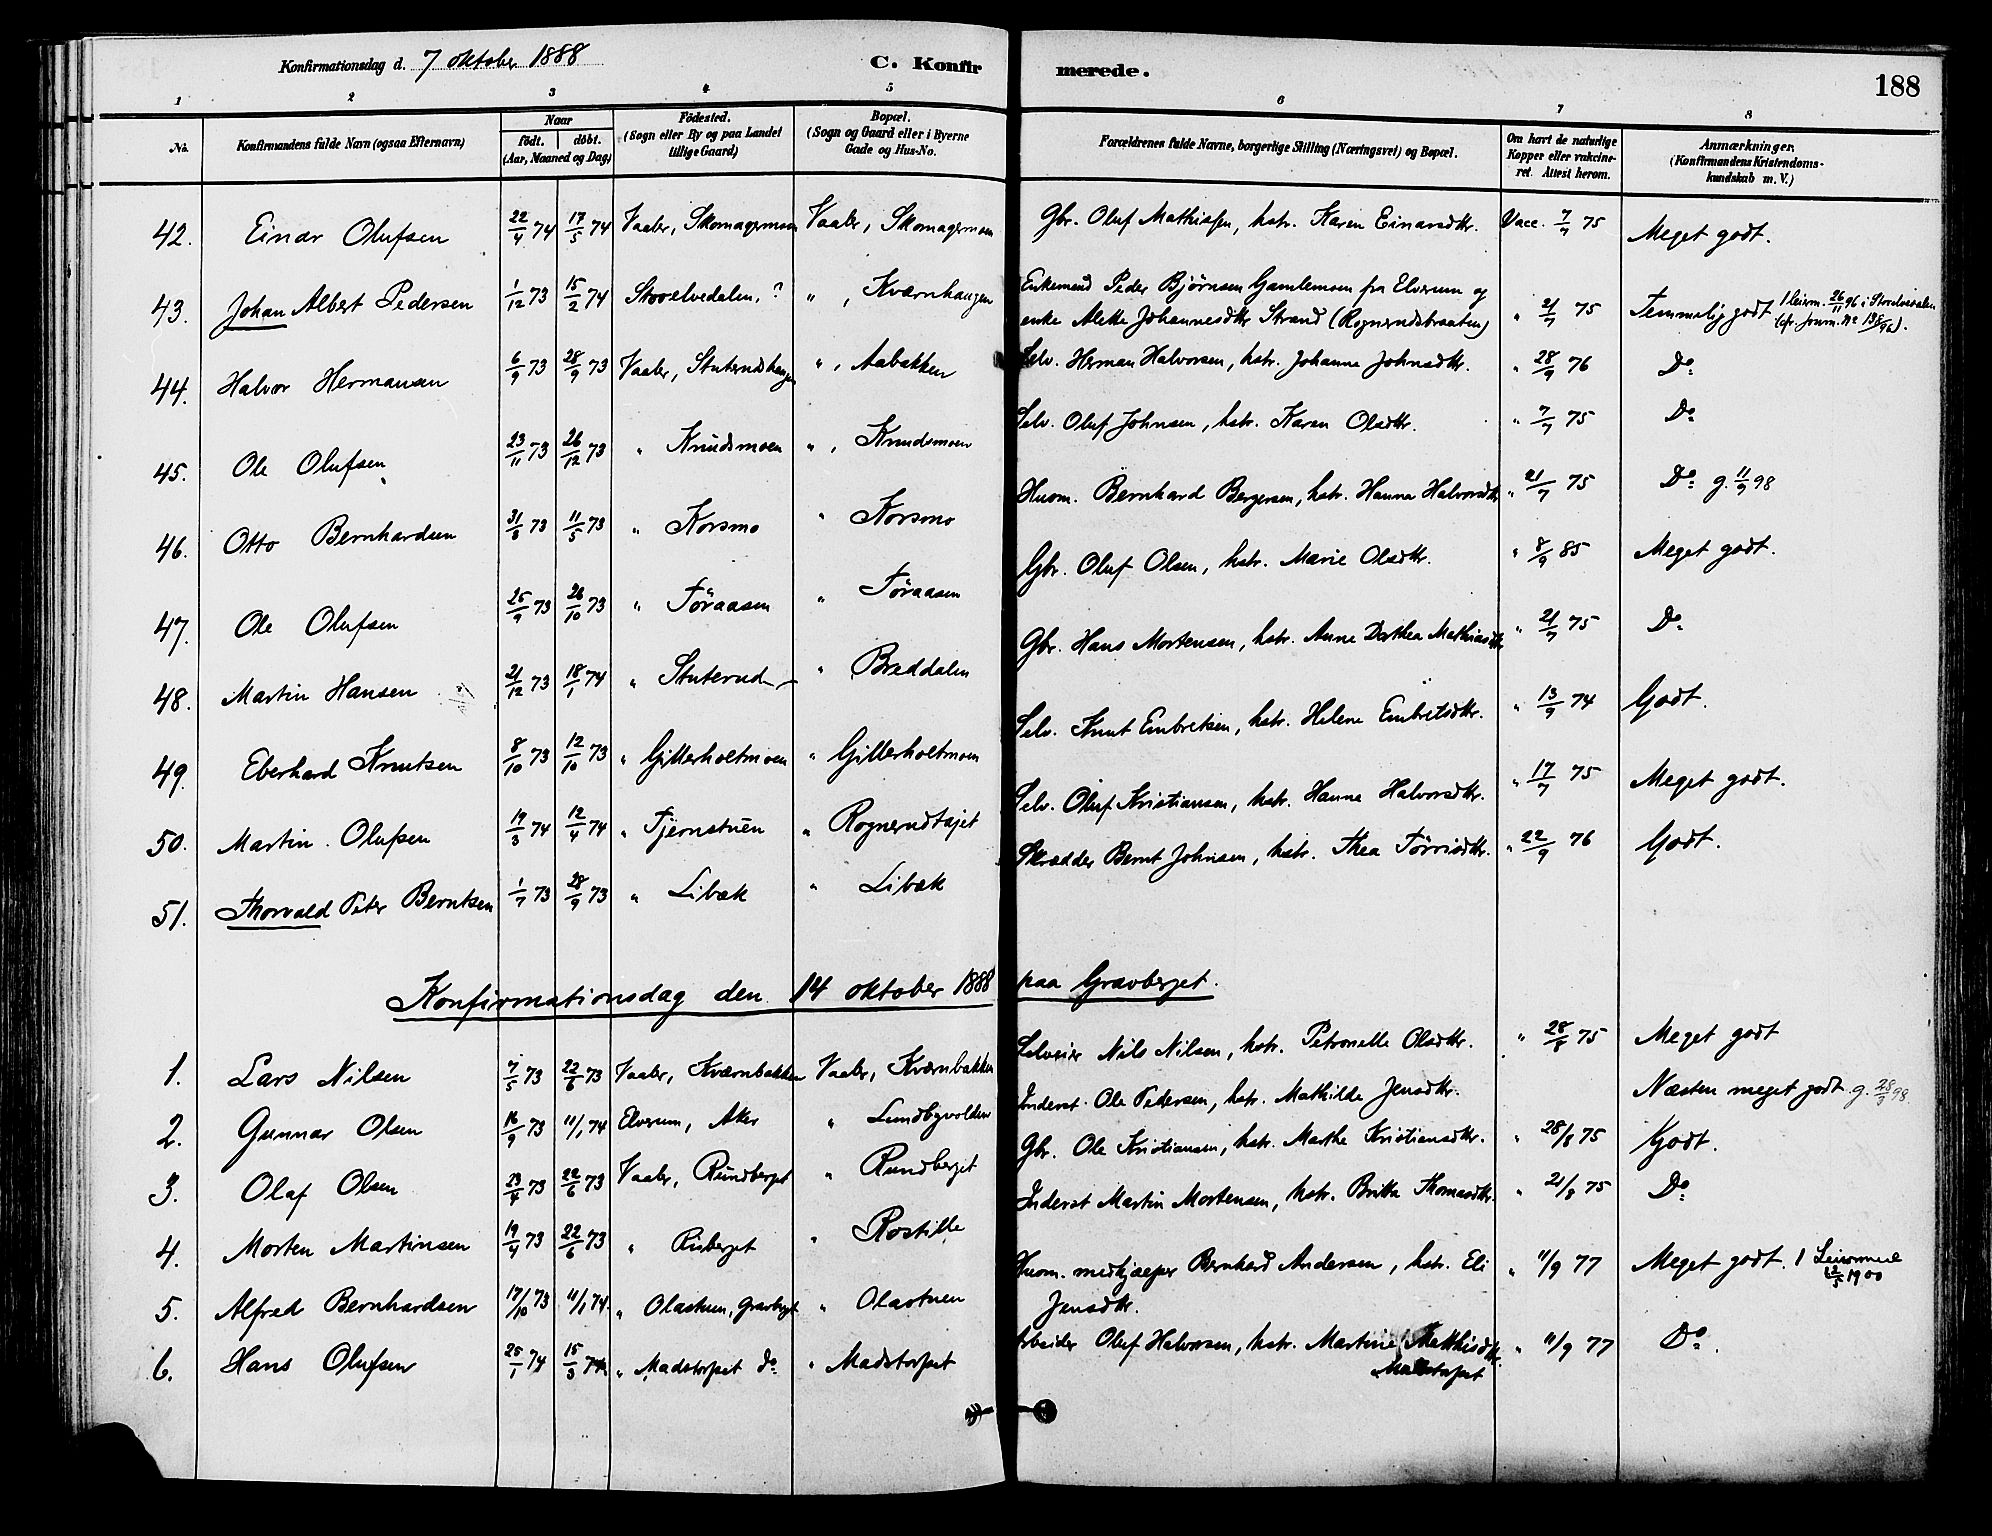 Konfirmationsdag d. 7 oktober 1888
C. Konfirmerede.
188
1 2 3 4 5 6 7 8
No. Konfirmandens fulde Navn (ogsaa Efternavn) Naar födt. döbt. (Aar, Maaned og Dag) Födested. (Sogn eller By og paa Landet tillige Gaard) Bopæl. (Sogn og Gaard eller i Byerne Gade og Hus-No. Forældrenes fulde Navne, borgerlige Stilling (Næringsvei) og Bopæl. Om havt de naturlige Kopper eller vakcineret. Attest herom. Anmærkninger. (Konfirmandens Kristendomskundskab m. V.)
42. Einar Olufsen 22/4 74 17/5 74 Vaaler, Skomagermoen Vaaler, Skomagermoen Gbr. Oluf Mathisen, hstr. Karen Einarsdtr. Vacc. 7/7 75 Meget godt.
43. Johan Albert Pedersen 1/12 73 15/2 74 Storelvedalen, ? " , Kværnhaugen Enkemand Peder Bjørnsen Gamlemoen fra Elverum og
enke Mette Johannesdtr Strand (Rognerudsbraaten) " 21/7 75 Temmelig godt
44. Halvor Hermansen 6/9 73 28/9 73 Vaaler, Stuterudhaugen " , Aabakken Selv. Herman Halvorsen, hstr. Johanne Johnsdtr. " 28/9 76 Do
45. Ole Olufsen 23/11 73 26/12 73 " Knudsmoen " , Knudsmoen Selv. Oluf Johnsen, hstr. Karen Olsdtr. " 7/7 75 Do
46. Otto Bernhardsen 31/3 73 11/5 73 " Korsmo " Korsmo Husm. Bernhard Bergersen, hstr. Hanna Halvorsdtr " 21/7 75 Do g. 11/9 98
47. Ole Olufsen 25/9 73 26/10 73 " Töraasen " Töraasen Gbr. Oluf Olsen, hstr. Marie Olsdtr. " 8/9 85 Meget godt.
48. Martin Hansen 21/12 73 18/1 74 " Stuterud " Breddalen Gbr. Hans Mortensen, hstr. Anne Dorthea Mathiasdtr " 21/7 75 Do
49. Eberhard Knutsen 8/10 73 12/10 73 " Gitterholtmoen " Gitterholtmoen Selv. Knut Embretsen, hstr. Helene Embretsdtr. " 13/9 74 Godt.
50. Martin Olufsen 19/3 74 12/4 74 " Tjernstuen " Rognerudtajet Selv. Oluf Kristiansen, hstr. Hanna Halvorsdtr. " 17/7 75 Meget godt.
51. Thorvald Peter Berntsen 1/7 73 28/9 73 " Libæk " Libæk Skrædder Bernt Johnsen, hstr. Thea Törrisdtr. " 22/9 76 Godt.
Konfirmationsdag den 14 oktober 1888 paa Gravberget.
1. Lars Nilsen 7/5 73 22/6 73 Vaaler, Kværnbakken Vaaler, Kværnbakken Selveier Nils Nilsen, hstr. Petronelle Olsdtr. " 28/8 75 Meget godt
2. Gunnar Olsen 16/9 73 11/1 74 Elverum, Aker " Lundbyvolden Inderst Ole Pedersen, hstr. Mathilde Jensdtr. Næsten meget godt. g. 28/3 98.
3. Olaf Olsen 23/4 73 22/6 73 Vaaler, Rundberget " Rundberget Gbr. Ole Kristiansen, hstr. Marthe Kristiansdtr. " 28/8 75 Godt.
4. Morten Martinsen 19/4 73 22/6 73 " Risberget " Rostille Inderst Martin Mortensen, hstr. Britta Thomasdtr. " 21/8 75 Do
5. Alfred Bernhardsen 17/10 73 11/1 74. " Olastuen, Gravbgt " Olastuen Husm. medhjælper Bernhard Andersen, hstr. Eli
Jensdtr. " 11/9 77 Meget godt.
6. Hans Olufsen 25/1 74 15/3 74 " Madstorpet do " Madstorpet Arbeider Oluf Halvorsen, hstr. Martine Matthisdtr.
Madstorpet " 11/9 77 Do.